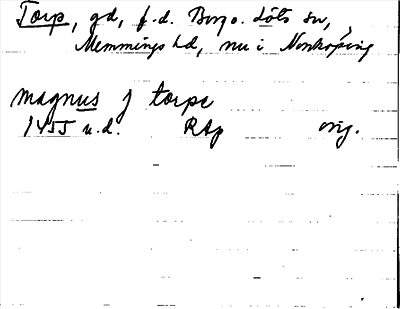 Torp, gd, f.d. Borgs o. Löts sn,
Memmings hd, nu i Norrköping
magnus j torpe
1455 u.d. RAp orig.